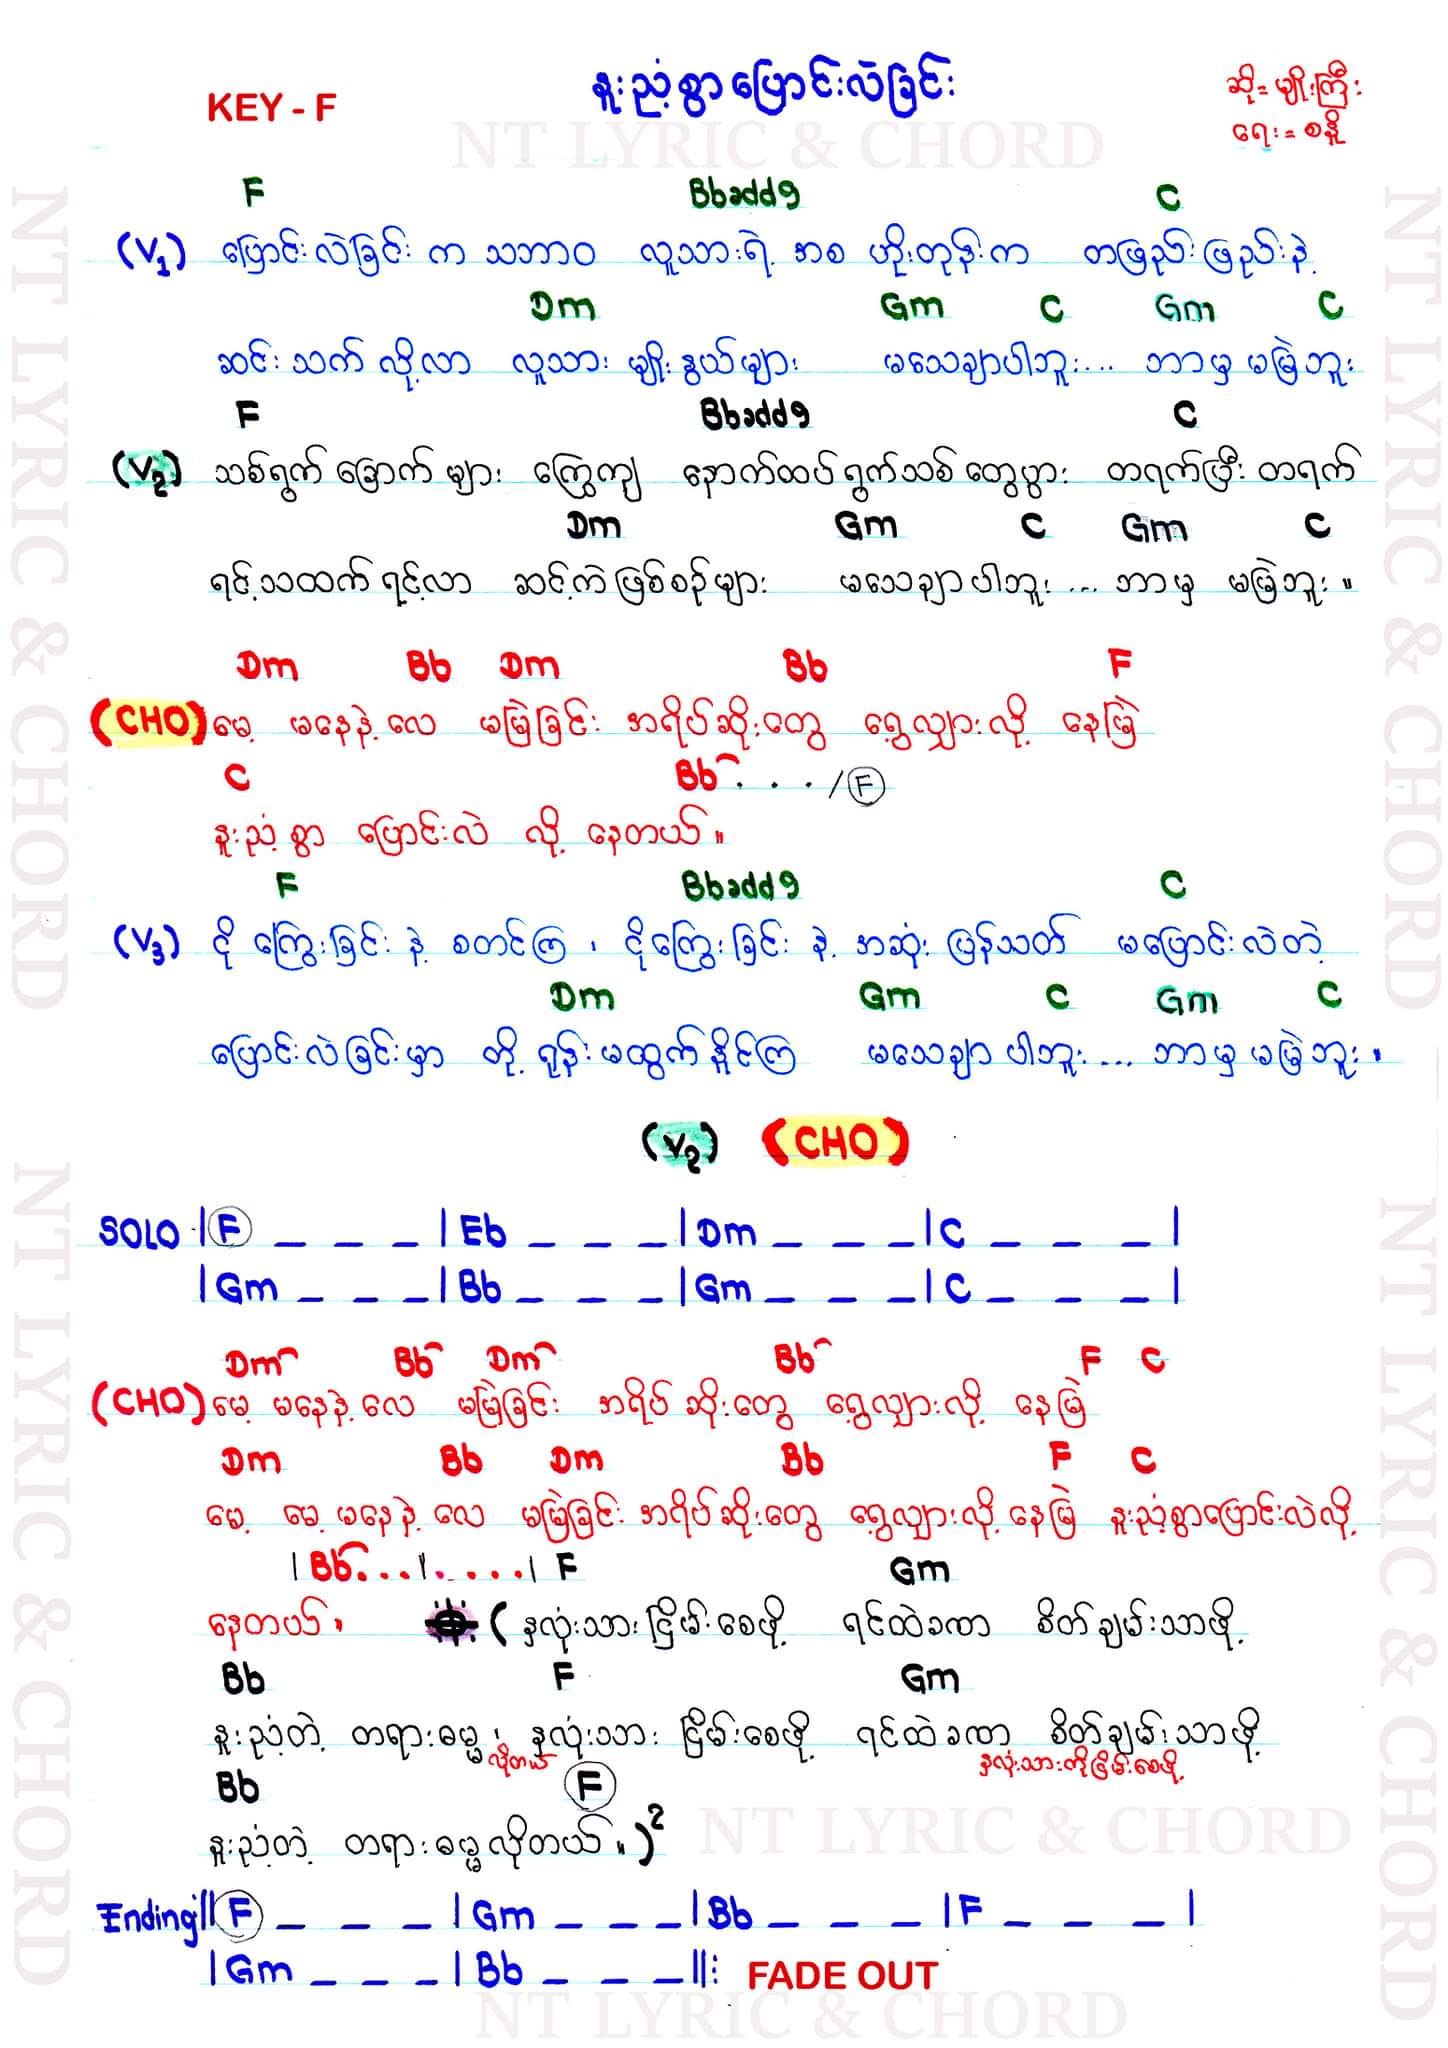 KEY - F
နူးညံ့စွာပြောင်းလဲခြင်း
ဆို = မျိုးကြီး
ရေး = စနိုး
NT LYRIC & CHORD
F Bbadd9 C
(V1) ပြောင်းလဲခြင်း က သဘာဝ လူသားရဲ့ အစ ဟိုးတုန်းက တဖြည်းဖြည်းနဲ့
Dm Gm C Gm C
ဆင်းသက်လို့လာ လူသား မျိုးနွယ်များ မသေချာပါဘူး... ဘာမှ မမြဲဘူး
F Bbadd9 C
(V2) သစ်ရွက်ခြောက်များ ကြွေကျ နောက်ထပ်ရွက်သစ်တွေပွား တရက်ပြီးတရက်
Dm Gm C Gm C
ရင့်သထက်ရင့်လာ ဆင့်ကဲဖြစ်စဉ်များ မသေချာပါဘူး ... ဘာမှ မမြဲဘူး။
Dm Bb Dm Bb F
(CHO) မေ့ မနေနဲ့လေ မမြဲခြင်း အရိပ်ဆိုးတွေ ရွေ့လျှားလို့ နေမြဲ
C Bb . . . / F
နူးညံ့စွာ ပြောင်းလဲ လို့ နေတယ်။
F Bbadd9 C
(V3) ငိုကြွေးခြင်း နဲ့ စတင်ကြ ၊ ငိုကြွေးခြင်း နဲ့ အဆုံး ပြန်သတ် မပြောင်းလဲတဲ့
Dm Gm C Gm C
ပြောင်းလဲခြင်းမှာ တို့ ရုန်းမထွက်နိုင်ကြ မသေချာပါဘူး ... ဘာမှ မမြဲဘူး။
(V2) (CHO)
SOLO | F _ _ _ | Eb _ _ _ | Dm _ _ _ | C _ _ _ |
| Gm _ _ _ | Bb _ _ _ | Gm _ _ _ | C _ _ _ |
Dm Bb Dm Bb F C
(CHO) မေ့ မနေနဲ့လေ မမြဲခြင်း အရိပ်ဆိုးတွေ ရွေ့လျှားလို့ နေမြဲ
Dm Bb Dm Bb F C
မေ့ မေ့မနေနဲ့ လေ မမြဲခြင်း အရိပ်ဆိုးတွေ ရွေ့လျှားလို့နေမြဲ နူးညံ့စွာပြောင်းလဲလို့
| Bb . . . | . . . . | F Gm
နေတယ်။ ( နှလုံးသားငြိမ်းစေဖို့ ရင်ထဲခဏ စိတ်ချမ်းသာဖို့
Bb F Gm
နူးညံ့တဲ့ တရားဓမ္မ ၊ နှလုံးသား ငြိမ်းစေဖို့ ရင်ထဲခဏ စိတ်ချမ်းသာဖို့
လိုတယ် နှလုံးသားကိုငြိမ်းစေဖို့
Bb F
နူးညံ့တဲ့ တရားဓမ္မလိုတယ်။ )2
NT LYRIC & CHORD
Ending:|| F _ _ _ | Gm _ _ _ | Bb _ _ _ | F _ _ _ |
| Gm _ _ _ | Bb _ _ _ ||: FADE OUT
NT LYRIC & CHORD
NT LYRIC & CHORD
NT LYRIC & CHORD
NT LYRIC & CHORD
NT LYRIC & CHORD